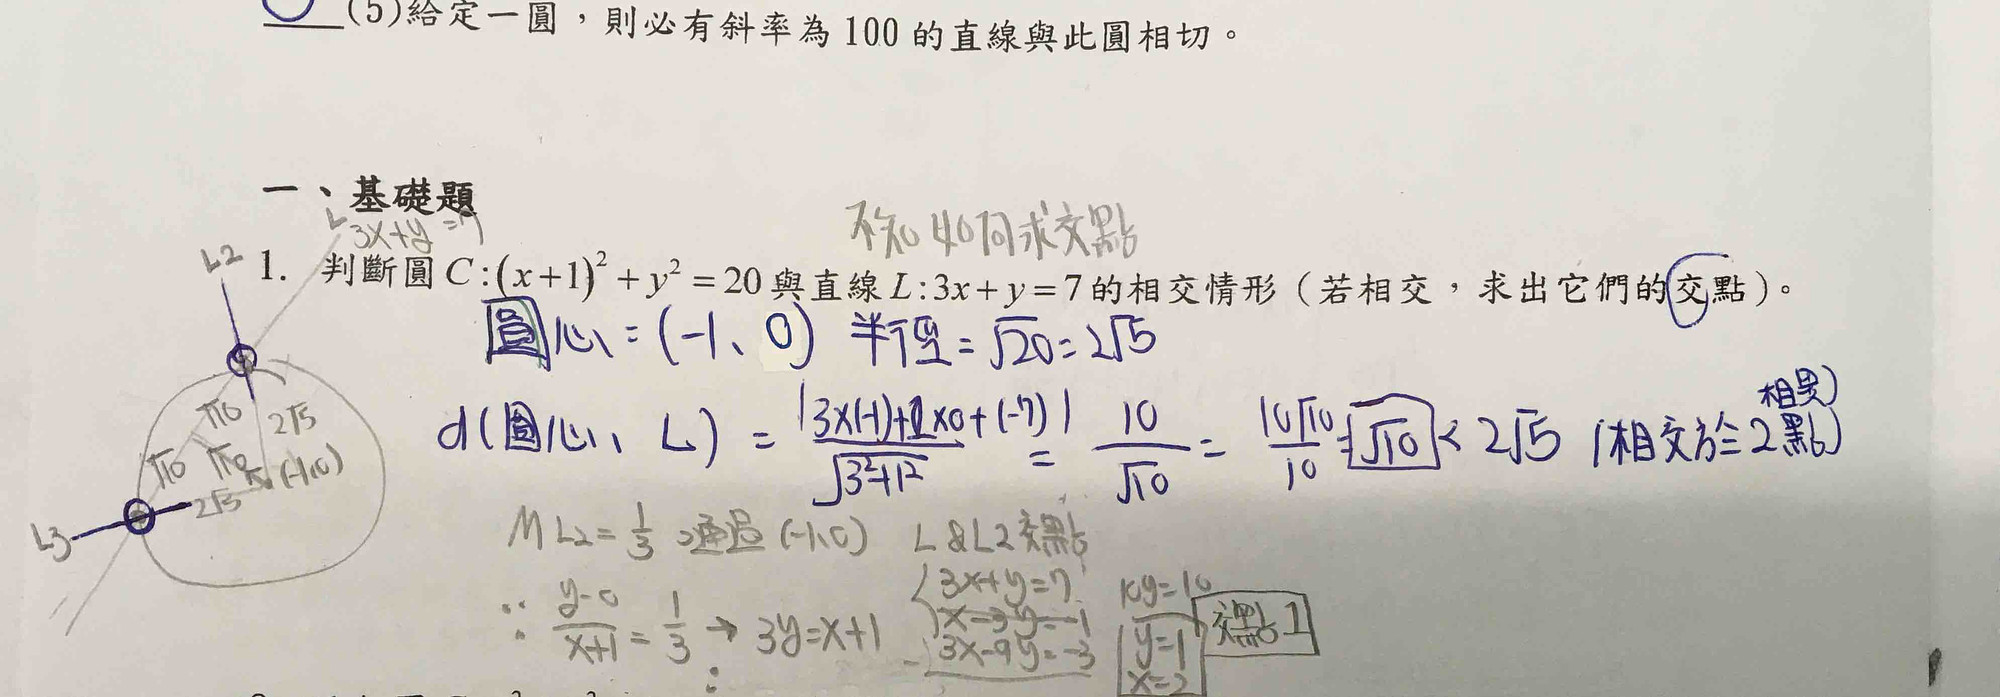 (5)給定一圓，則必有斜率為100的直線與此圓相切。
一、基礎題
L 3x+y=7
不知如何求交點
1. 判斷圓C:(x+1)²+y²=20與直線L:3x+y=7的相交情形（若相交，求出它們的交點）。
圓心=(-1、0) 半徑=√20=2√5
d(圓心、L)=|3×(-1)+1×0+(-7)|/√3²+1²=10/√10=10√10/10=√10<2√5 (相交於2點)
相異
L2
√10 2√5
√10 √10 (-1,0)
2√5
L3
ML2=1/3 通過(-1,0) L&L2交點
∵ y-0/x+1=1/3→3y=x+1
3x+y=7
x-3y=-1
3x-9y=-3
10y=10
y=1
x=2
交點1